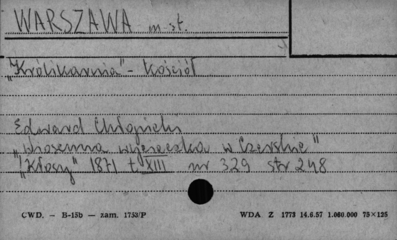 WARSZAWA m st.
"Królikarnia" - Kościół
Edward Chłopicki
"Wiosenna wycieczka w Czersku"
"Kłosy" 1871 t. XIII nr 329 str 248
CWD. - B-15b - zam. 1753/P WDA Z 1773 14.6.57 1.000.000 75×125